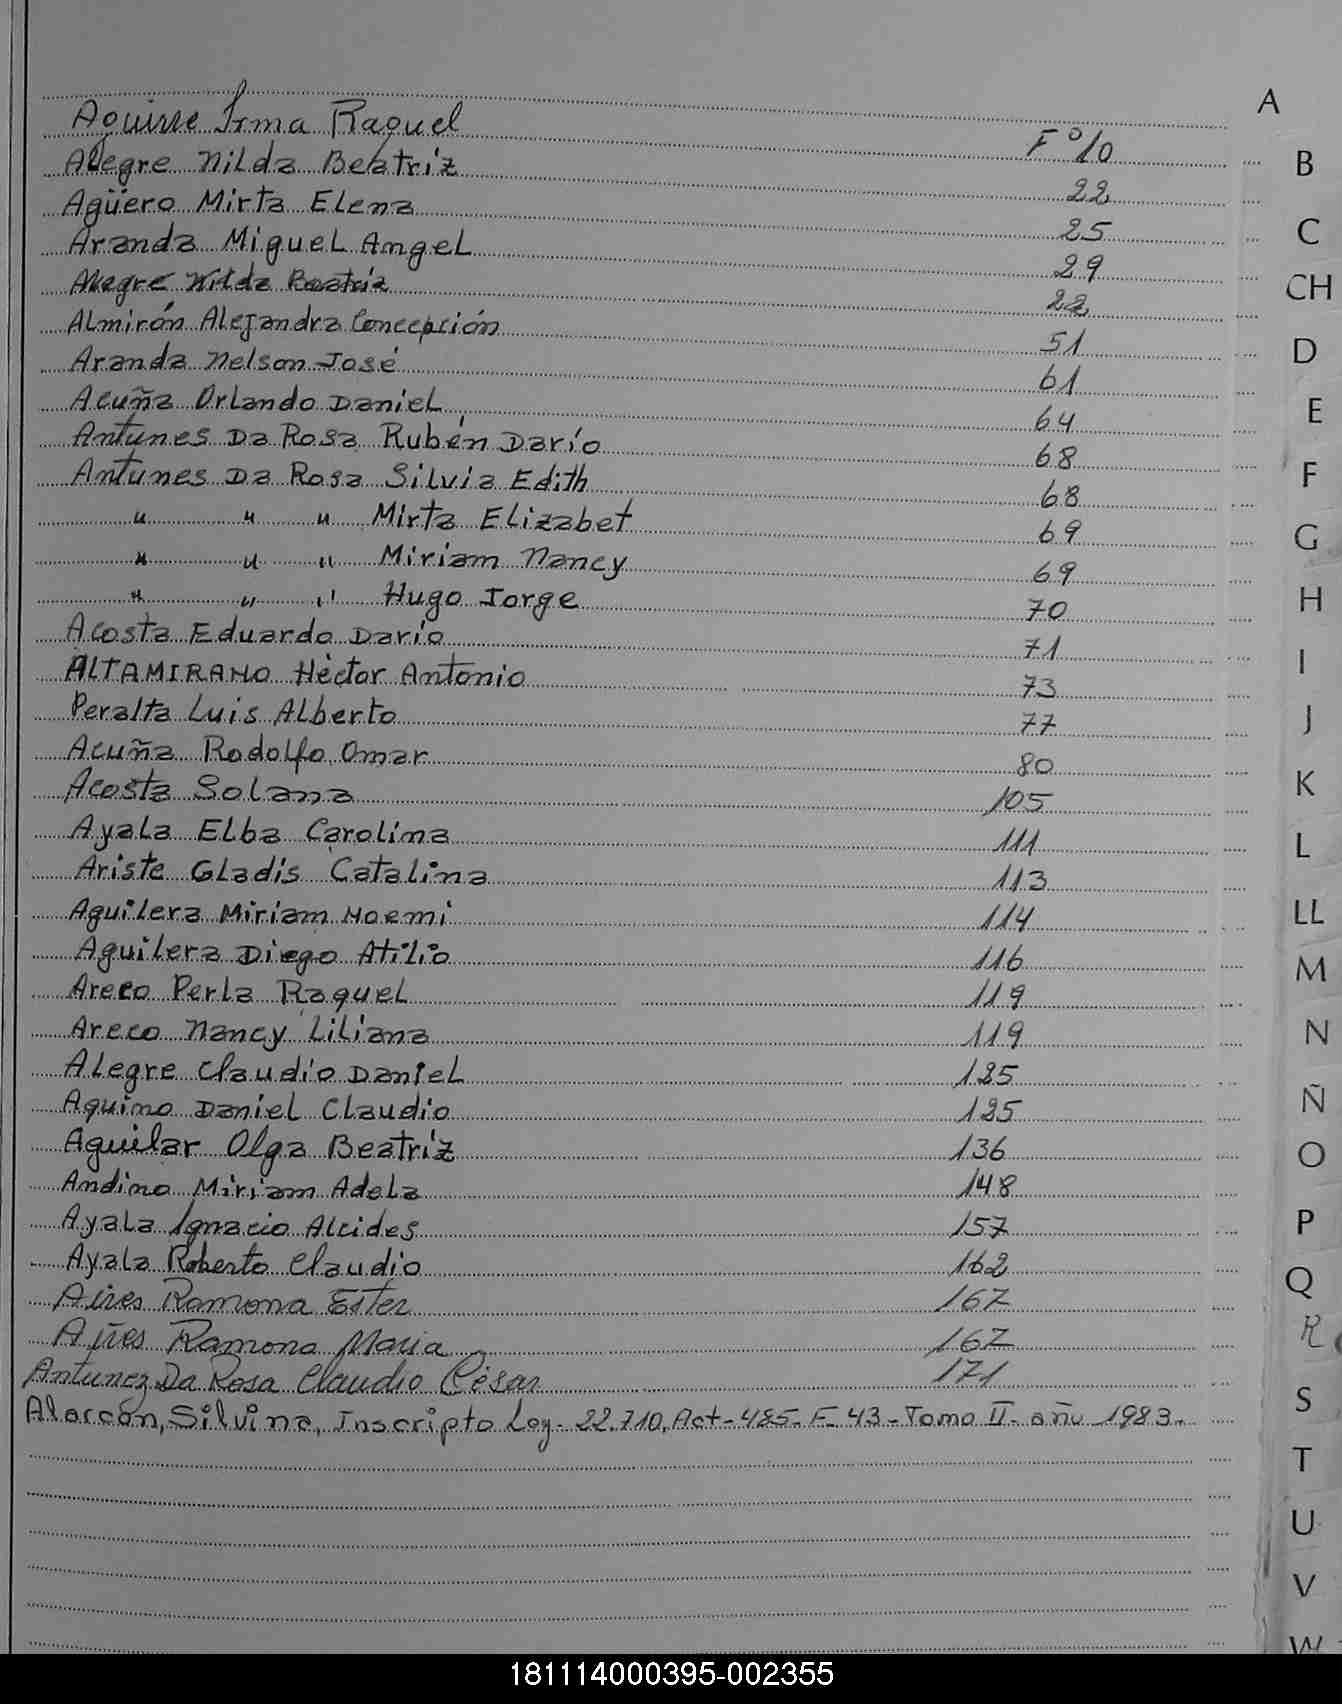 Aguirre Irma Raquel Fº 10
Alegre Nilda Beatriz 22
Agüero Mirta Elena 25
Aranda Miguel Angel 29
Alegre Nilda Beatriz 22
Almirón Alejandra Concepción 51
Aranda Nelson José 61
Acuña Orlando Daniel 64
Antunes Da Rosa Rubén Darío 68
Antunes Da Rosa Silvia Edith 68
" " " Mirta Elizabet 69
" " " Miriam Nancy 69
" " " Hugo Jorge 70
Acosta Eduardo Darío 71
ALTAMIRANO Héctor Antonio 73
Peralta Luis Alberto 77
Acuña Rodolfo Omar 80
Acosta Solana 105
Ayala Elba Carolina 111
Ariste Gladis Catalina 113
Aguilera Miriam Noemi 114
Aguilera Diego Atilio 116
Areco Perla Raquel 119
Areco Nancy Liliana 119
Alegre Claudio Daniel 125
Aquino Daniel Claudio 125
Aguilar Olga Beatriz 136
Andino Miriam Adela 148
Ayala Ignacio Alcides 157
Ayala Roberto Claudio 162
Aires Ramona Ester 167
Aires Ramona Maria 167
Antunez Da Rosa Claudio César 171
Alarcón, Silvina, Inscripto Ley- 22.710, Act-485- F- 43- Tomo II- año 1983-
A
B
C
CH
D
E
F
G
H
I
J
K
L
LL
M
N
Ñ
O
P
Q
R
S
T
U
V
W
181114000395-002355